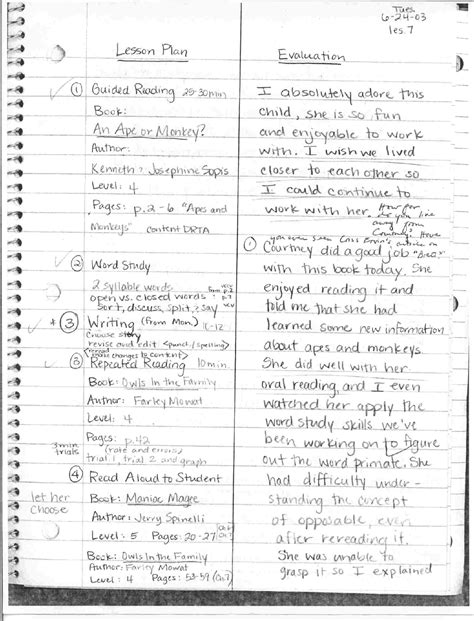 Tues.
6-24-03
les. 7
Lesson Plan
① Guided Reading 25-30min
Book:
An Ape or Monkey?
Author:
Kenneth & Josephine Sopis
Level: 4
Pages: p. 2-6 "Apes and
Monkeys" content DRTA
② Word Study
2 syllable words
open vs. closed words
sort, discuss, split, say
* ③ Writing (From Mon.)
choose story
revise and edit <punct./spelling>
⑤ Repeated Reading 10 min.
Book: Owls In the Family
Author: Farley Mowat
Level: 4
Pages: p. 42
3 min trials
(rate and errors)
trial 1, trial 2 and graph
④ Read Aloud to Student
let her
choose
Book: Maniac Magee
Author: Jerry Spinelli
Level: 5 Pages: 20-27
Book: Owls In the Family
Author: Farley Mowat
Level: 4 Pages: 53-59 (Ch. 7)
Evaluation
I absolutely adore this
child, she is so fun
and enjoyable to work
with. I wish we lived
closer to each other so
I could continue to
work with her.
How far
do you live
away from
① Courtney did a good job
with this book today. She
enjoyed reading it and
told me that she had
learned some new information
about apes and monkeys.
She did well with her
oral reading, and I even
watched her apply the
word study skills we've
been working on to figure
out the word primate. She
had difficulty under-
standing the concept
of opposable, even
after rereading it.
She was unable to
grasp it so I explained